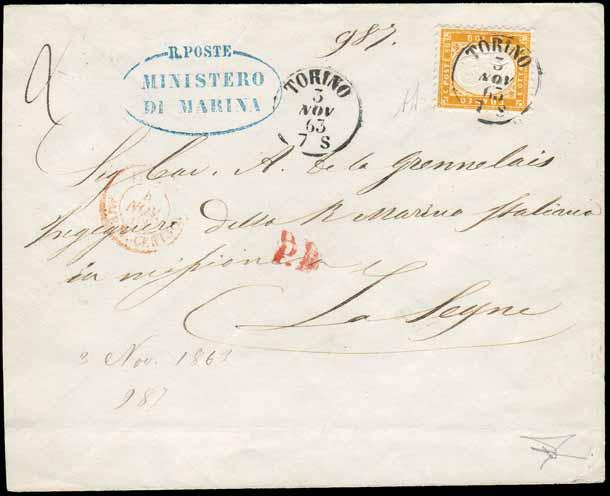 987.
R.POSTE
MINISTERO
DI MARINA
TORINO
3
NOV
63
7 S
TORINO
3
NOV
63
7 S
Sig Cav. A. De la Grennelais
Ingegnere della R Marina Italiana
in missione a
P.D.
La Seyne
NOV.
3 Nov. 1863
987